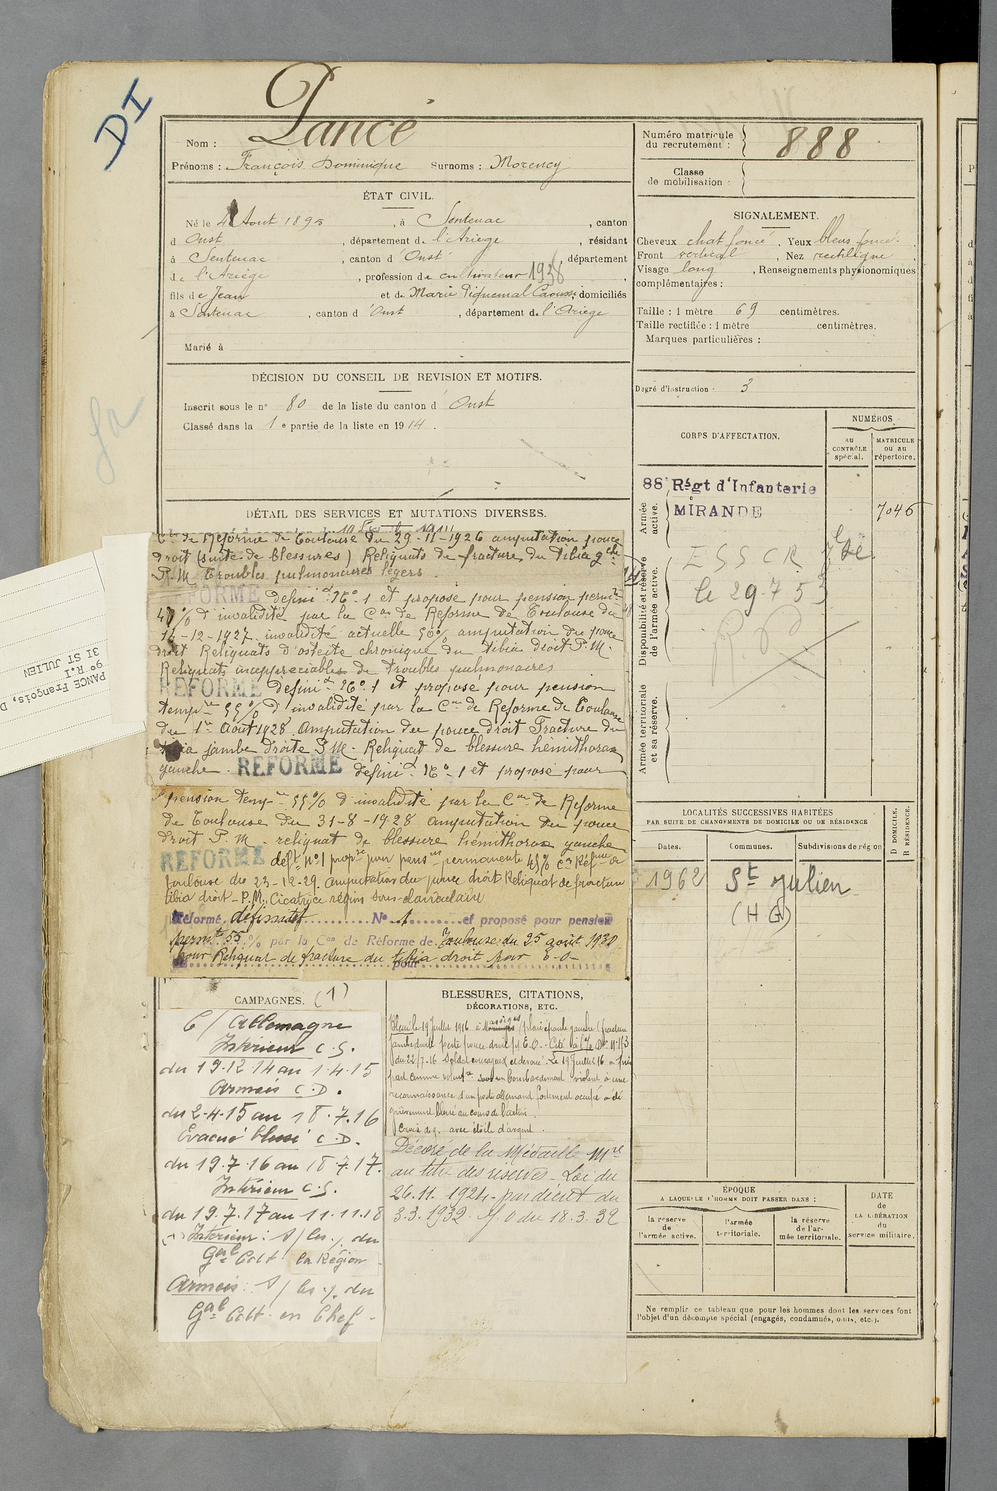 DI
Pancé
Nom :
Prénoms : François Dominique Surnoms : Morency
ÉTAT CIVIL.
Né le 4 Aout 1895, à Sentenac, canton
d'Oust, département de l'Ariège, résidant
à Sentenac, canton d'Oust, département
de l'Ariège, profession de cultivateur 1938
fils de Jean et de Marie Piquemal Caouss, domiciliés
à Sentenac, canton d'Oust, département de l'Ariège
Marié à
DÉCISION DU CONSEIL DE REVISION ET MOTIFS.
Inscrit sous le n° 80 de la liste du canton d'Oust
Classé dans la 1e partie de la liste en 1914.
DÉTAIL DES SERVICES ET MUTATIONS DIVERSES.
de Réforme de Toulouse du 29-11-1926 amputation pouce
droit (suite de blessures) Reliquats de fracture du tibia gche
P.M. Troubles pulmonaires légers.
RÉFORMÉ défini. N° 1 et proposé pour pension permte
% d'invalidité par la Con de Réforme de Toulouse du
14-12-1927. invalidité actuelle 50% amputation du pouce
droit Reliquats d'ostéite chronique du tibia droit P.M.
Reliquats inappréciables de troubles pulmonaires
RÉFORMÉ défini. N° 1 et proposé pour pension
tempre 55% d'invalidité par la Con de Réforme de Toulouse
du 1er Août 1928 Amputation du pouce droit Fracture du
tibia jambe droite P.M. Reliquat de blessure hémithorax
gauche. RÉFORMÉ défini. N° 1 et proposé pour
pension tempre 55% d'invalidité par la Con de Réforme
de Toulouse du 31-8-1928 amputation du pouce
droit P.M. reliquat de blessure hémithorax gauche
RÉFORMÉ déft n°1 propsé pour pension permanente 45% Con Réforme de
Toulouse du 23-12-29. Amputation du pouce droit Reliquat de fracture
tibia droit - P.M. Cicatrice région sous-claviculaire
Réformé définitif N° 1 et proposé pour pension
permte 55 % par la Con de Réforme de Toulouse du 25 août 1930
pour Reliquat de fracture du tibia droit
CAMPAGNES. (1)
C/ Allemagne
Intérieur C.S.
du 19.12.14 au 1.4.15
Armées C.D.
du 2-4.15 au 18.7.16
Evacué blessé C.D.
du 19.7.16 au 18.7.17.
Intérieur C.S.
du 19.7.17 au 11.11.18
Intérieur : S/ les . du
Gal Cdt la Région
Armées : S/ les . du
Gal Cdt en Chef -
BLESSURES, CITATIONS,
DÉCORATIONS, ETC.
Blessé le 19 Juillet 1916 plaie épaule gauche, fracture
jambe droite perte pouce droit
du 22-7-16 Soldat courageux et dévoué. Le 19 Juillet 16 a fait
part comme volontre sous un bombardement violent à une
reconnaissance d'un poste allemand fortement occupé a été
grièvement blessé au cours de l'action.
Croix de g. avec étoile d'argent.
Décoré de la Médaille Mre
au titre des réserves - Loi du
26.11.1924 - par décret du
3.3.1932. J.O du 18.3.32
Numéro matricule
du recrutement : 888
Classe
de mobilisation :
SIGNALEMENT.
Cheveux chat. foncé, Yeux bleus foncé
Front vertical, Nez rectiligne
Visage long, Renseignements physionomiques
complémentaires :
Taille : 1 mètre 69 centimètres.
Taille rectifiée : 1 mètre centimètres.
Marques particulières :
Degré d'instruction : 3
CORPS D'AFFECTATION.
NUMÉROS
AU CONTRÔLE spécial.
MATRICULE ou au répertoire.
Armée active.
88e Régt d'Infanterie
MIRANDE
7046
Disponibilité et réserve de l'armée active.
ESSCR
le 29.7.53
Armée territoriale et sa réserve.
LOCALITÉS SUCCESSIVES HABITÉES
PAR SUITE DE CHANGEMENTS DE DOMICILE OU DE RÉSIDENCE
D DOMICILE.
R RÉSIDENCE.
Dates. Communes. Subdivisions de région
1962 St Julien
(HG)
ÉPOQUE
A LAQUELLE L'HOMME DOIT PASSER DANS :
la réserve de l'armée active.
l'armée territoriale.
la réserve de l'armée territoriale.
DATE de LA LIBÉRATION du service militaire.
Ne remplir ce tableau que pour les hommes dont les services font
l'objet d'un décompte spécial (engagés, condamnés, omis, etc.).
PANCE François, D
9° R.I
31 ST JULIEN